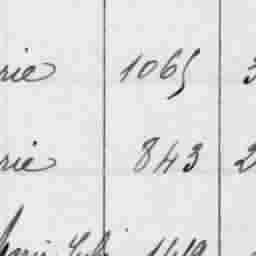 rie 1065 3
rie 843 2
Marie 1419